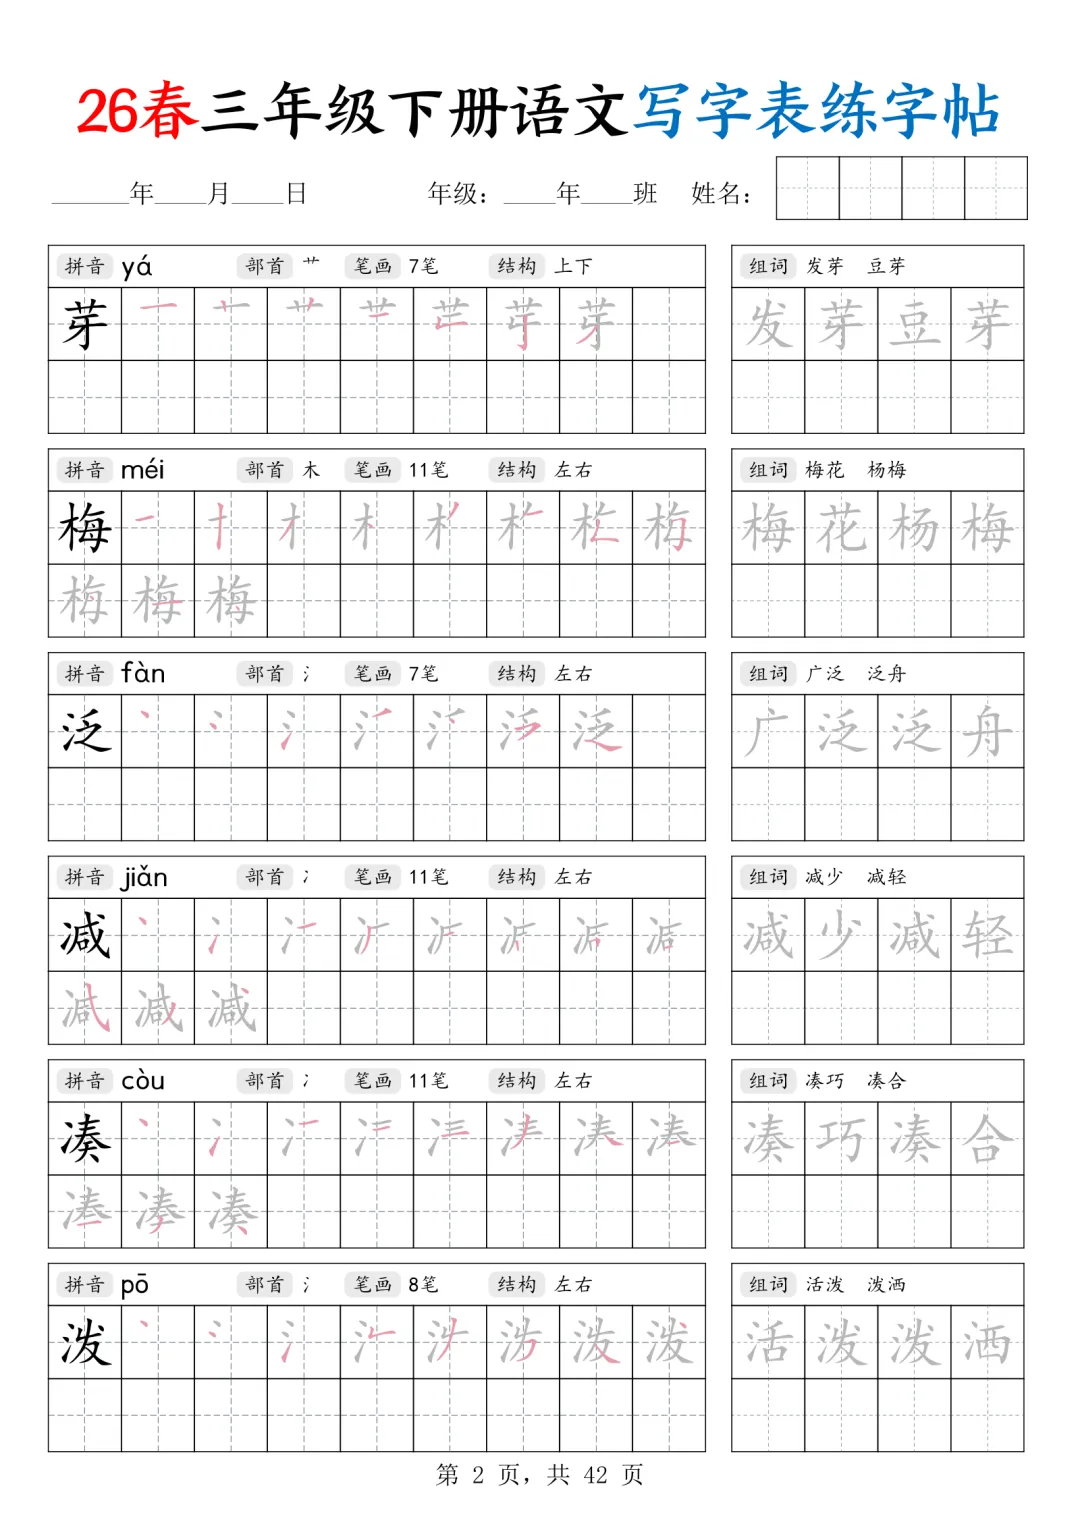 26春三年级下册语文写字表练字帖
______年____月____日 年级：____年____班 姓名：
拼音 yá 部首 艹 笔画 7笔 结构 上下 组词 发芽 豆芽
芽 发芽豆芽
拼音 méi 部首 木 笔画 11笔 结构 左右 组词 梅花 杨梅
梅 梅花杨梅
梅 梅 梅
拼音 fàn 部首 氵 笔画 7笔 结构 左右 组词 广泛 泛舟
泛 广泛泛舟
拼音 jiǎn 部首 冫 笔画 11笔 结构 左右 组词 减少 减轻
减 减少减轻
减 减 减
拼音 còu 部首 冫 笔画 11笔 结构 左右 组词 凑巧 凑合
凑 凑巧凑合
凑 凑 凑
拼音 pō 部首 氵 笔画 8笔 结构 左右 组词 活泼 泼洒
泼 活泼泼洒
第 2 页，共 42 页